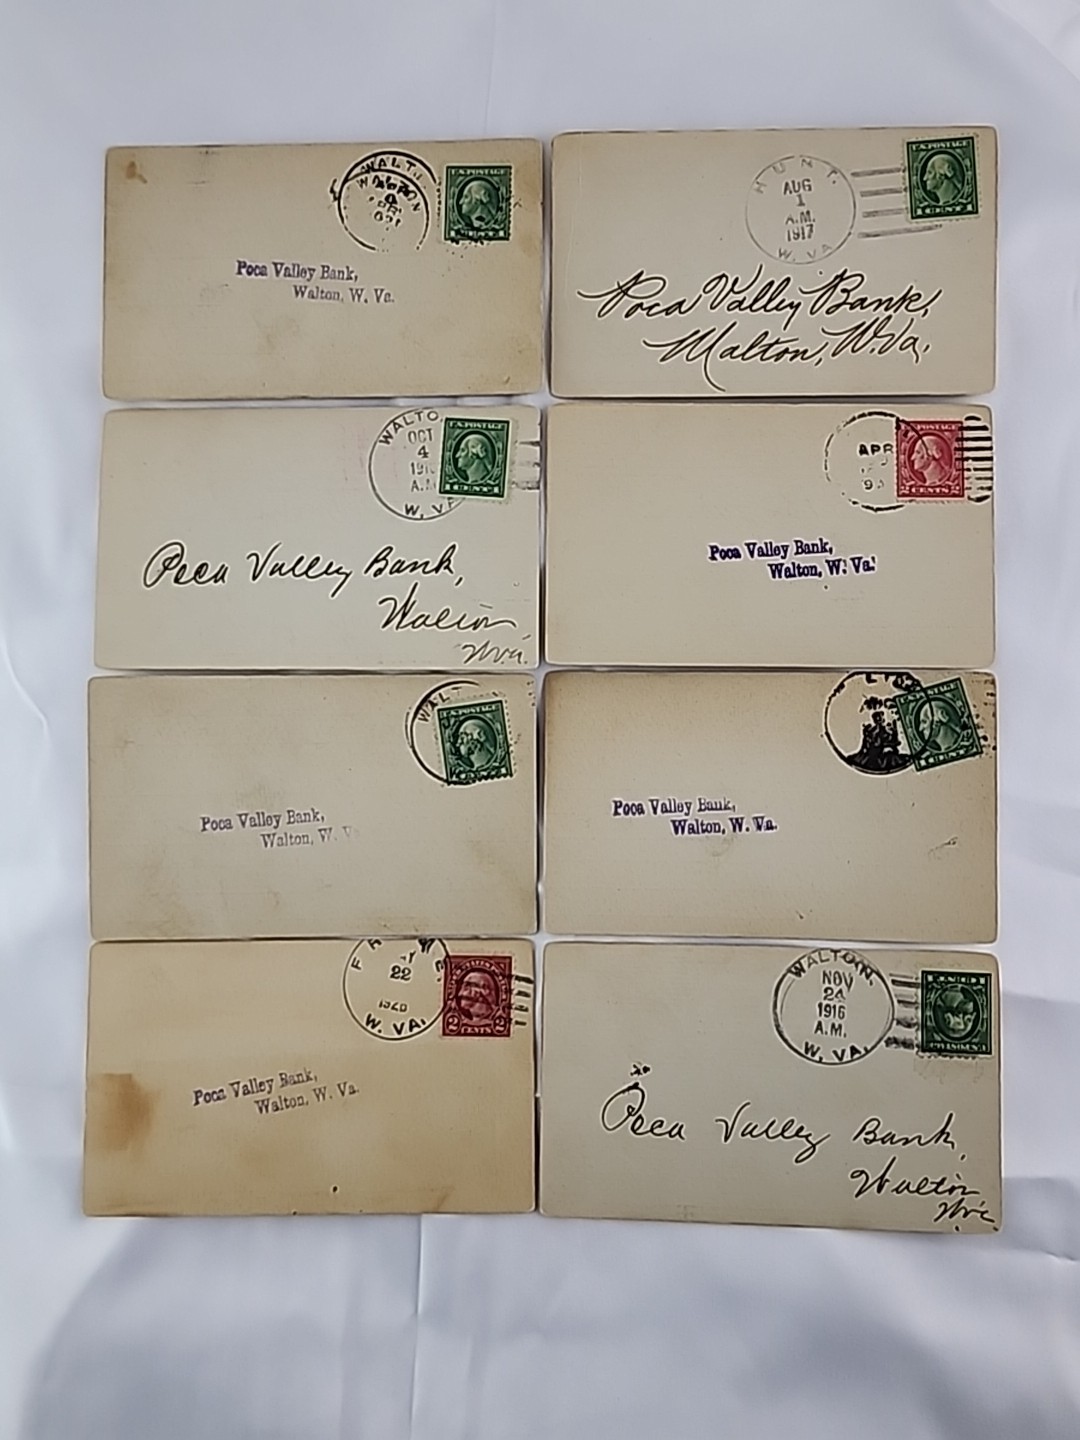 WALT
WALTON
U.S. POSTAGE
Poca Valley Bank,
Walton, W. Va.
HUNT.
AUG
1
A.M.
1917
W. VA
1 CENT 1
Poca Valley Bank,
Walton, W. Va.
WALTO
OCT
4
191
A.M
W. VA
U.S. POSTAGE
1 CENT 1
Poca Valley Bank,
Walton
W. Va.
APR
2 CENTS 2
Poca Valley Bank,
Walton, W. Va.
WALT
U.S. POSTAGE
Poca Valley Bank,
Walton, W. V
U.S. POSTAGE
Poca Valley Bank,
Walton, W. Va.
22
W. VA.
2 CENTS 2
Poca Valley Bank,
Walton, W. Va.
WALTON,
NOV
24
1916
A.M.
W. VA.
Poca Valley Bank,
Walton
W. Va